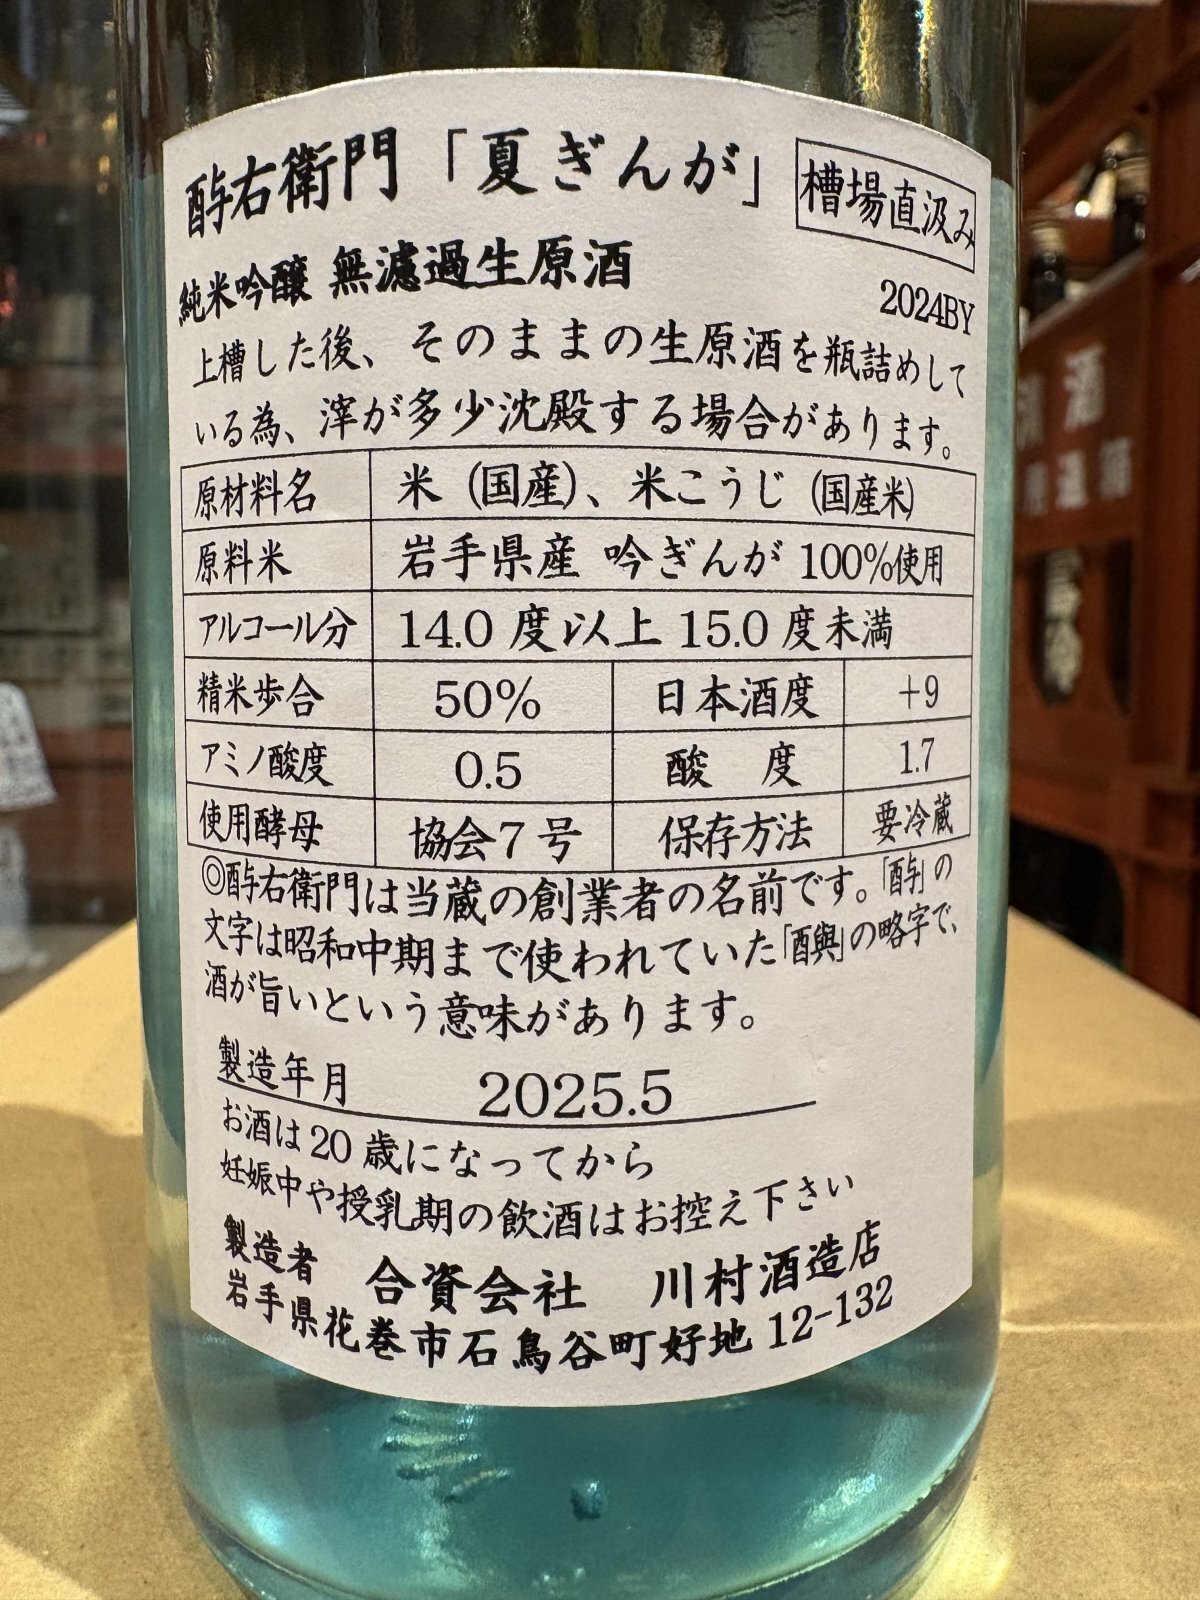 酉与右衛門「夏ぎんが」 槽場直汲み
純米吟醸 無濾過生原酒 2024BY
上槽した後、そのままの生原酒を瓶詰めして
いる為、滓が多少沈殿する場合があります。
原材料名 米(国産)、米こうじ(国産米)
原料米 岩手県産 吟ぎんが 100%使用
アルコール分 14.0 度以上 15.0 度未満
精米歩合 50% 日本酒度 +9
アミノ酸度 0.5 酸 度 1.7
使用酵母 協会7号 保存方法 要冷蔵
◎酉与右衛門は当蔵の創業者の名前です。「酉与」の
文字は昭和中期まで使われていた「酉與」の略字で、
酒が旨いという意味があります。
製造年月 2025.5
お酒は20歳になってから
妊娠中や授乳期の飲酒はお控え下さい
製造者 合資会社 川村酒造店
岩手県花巻市石鳥谷町好地 12-132